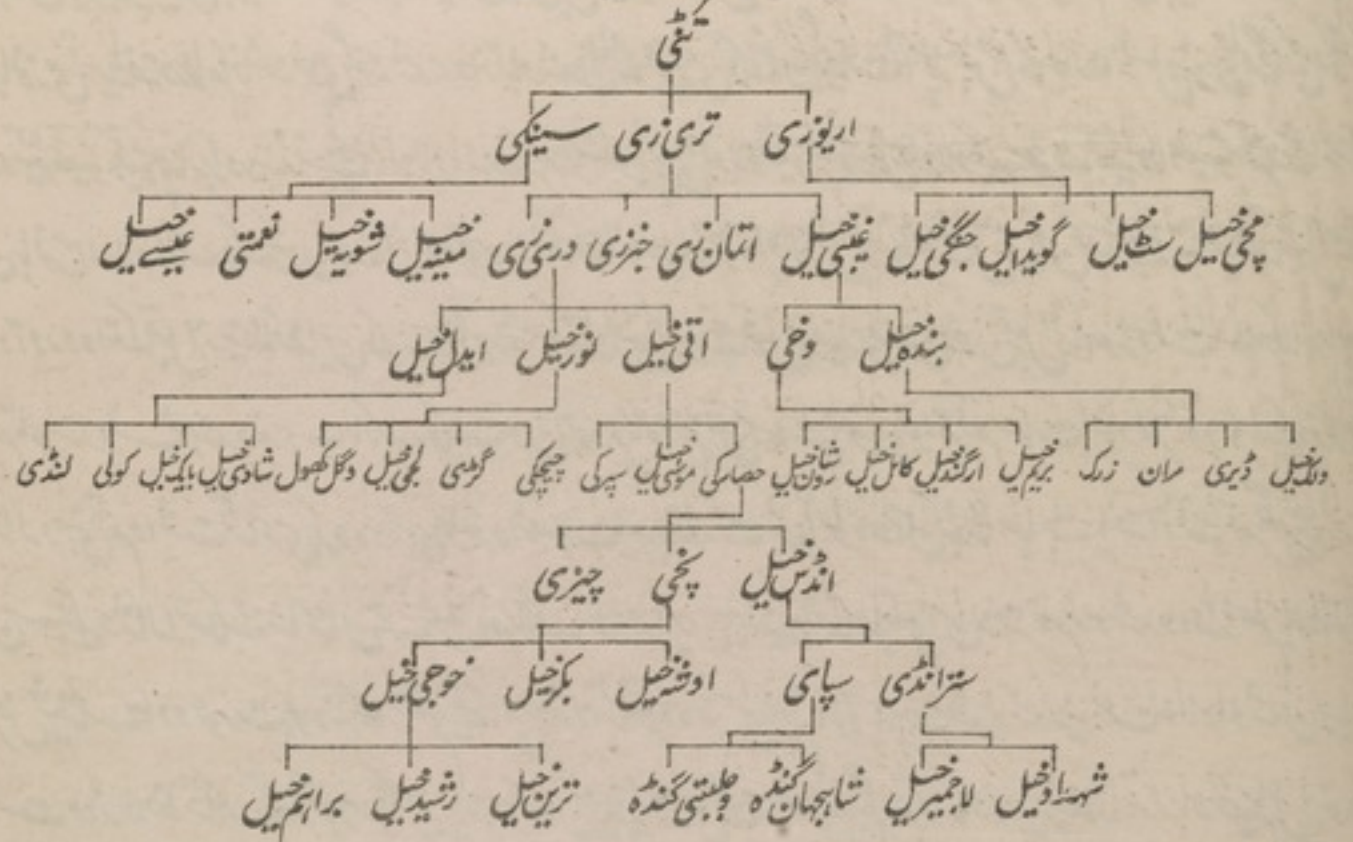 تنی
اریوزی تری زی سینکی
مچی خیل سٹ خیل گویداخیل جنگی خیل غیبی خیل اتمان زی خبزی دری زی مینہ خیل شوریہ خیل نعمتی عیسے خیل
بندہ خیل وخی اقی خیل نورخیل ایدل خیل
ڈیری مران زرک بریم خیل ارگندخیل کامل خیل روشان خیل حصارکی موسٰی خیل سپرکی چیچکی گڑھی لجمی خیل وگل کھول شادی خیل بابک خیل کولی لنڈی
اندس خیل پخی چیزی
ستراندی سپای اوشہ خیل بکرخیل خوجی خیل
شہزادخیل لاجمیرخیل شاہجہان گندہ وطبتی گندہ ترین خیل رشیدخیل براہم خیل